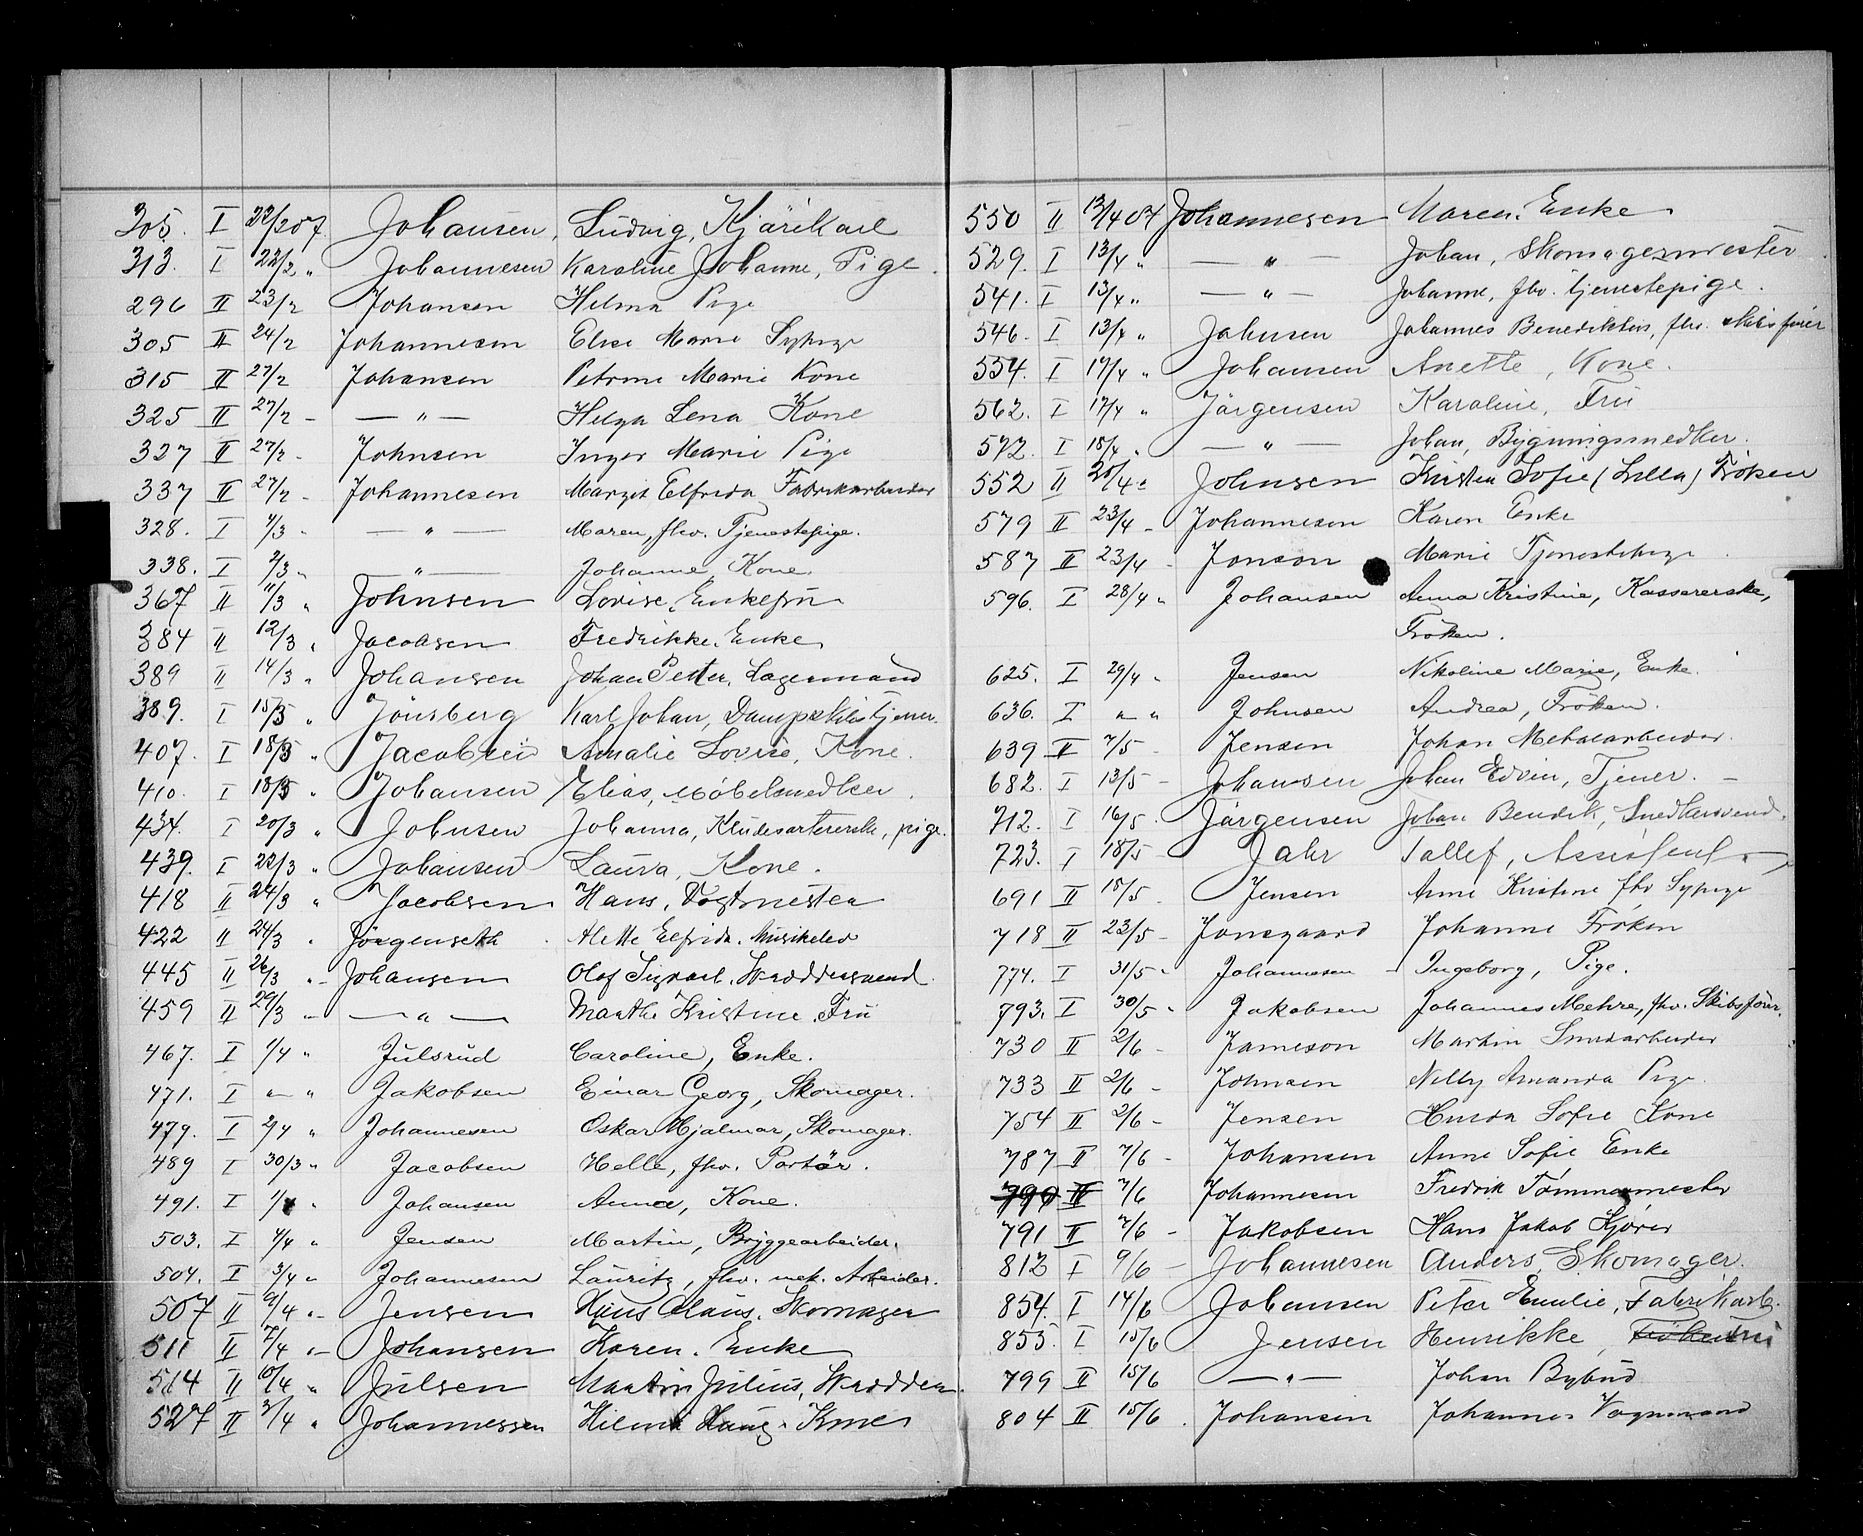 305. I 22/2 07. Johansen, Ludvig, Kjørekarl
313. I 22/2 „ Johannesen Karoline Johanne, Pige.
296 II 23/2 Johansen Helma Pige
305 II 24/2 Johannesen Elise Marie Sypige
315 II 27/2 Johansen Petrine Marie Kone
325 II 27/2 – — „ — Helga Lena Kone
327 II 27/2 - Johnsen Inger Marie Pige
337 II 27/2 - Johannesen Margit Elfrida Fabrikarbeider
328. I 1/3 - — „ — Maren, fhv. Tjenestepige.
338. I 2/3 „ — „ — Johanne, Kone.
367 II 11/3 „ Johnsen Lovise, Enkefru
384 II 12/3 „ Jacobsen Fredrikke. Enke
389 II 14/3 „ Johansen Johan Petter, Lagermand
389. I 15/3 „ Jönsberg Karl Johan, Dampskibstjener.
407. I 18/3 „ Jacobsen Amalie Lovise, Kone.
410. I 18/3 „ Johansen Elias, Möbelsnedker.
434. I 20/3 „ Johnsen Johanna, Kludesortererske, pige.
439. I 22/3 „ Johansen Laura, Kone.
418 II 24/3 „ Jacobsen Hans, Vogtmester
422 II 24/3 „ Jörgenseth Alette Elfrida. Musikelev
445 II 26/3 „ Johansen Olof Sigvart. Skræddersvend.
459 II 29/3 — — „ — Marthe Kristine. Frü
467. I 1/4 „ Julsrud Caroline, Enke.
471. I „ „ Jakobsen Einar Georg, Skomager.
479. I 2/4 „ Johannesen Oskar Hjalmar, Skomager.
489 I 30/3 „ Jacobsen Helle, fhv. Portör.
491. I 1/4 „ Johansen Anna, Kone.
503. I 4/4 „ Jensen Martin, Bryggearbeider.
504. I 3/4 „ Johannesen Lauritz, fhv. mek. Arbeider.
507 II 9/4 „ Jensen Hans Claus. Skomager
511 II 7/4 „ Johansen Karen. Enke
514 II 10/4 „ Julsen Martin Julius, Skrædder.
527 II /4 „ Johannessen Hilma Haug. Kone
550 II 13/4 07 Johannesen Maren. Enke
529. I 13/4 „ — „ — Johan, Skomagermester
541. I 13/4 „ — „ — Johanne, fhv. tjenestepige.
546. I 13/4 „ Johnsen Johannes Benediktus, fhv. skibsfører
554. I 17/4 „ Johansen Anette, Kone.
562. I 17/4 „ Järgensen Karoline, Frü
572. I 18/4 „ — „ — Johan, Bygningssnedker.
552 II 20/4 „ Johnsen Kristen Sofie (Lilla) Frøken
579 II 23/4 - Johannesen Karen Enke
587 II 23/4 - Jonson Marie Tjenestepige
596. I 28/4 „ Johansen Anna Kristine, Kassererske,
Frøken.
625. I 29/4 „ Jensen Nikoline Marie, Enke.
636. I „ „ Johnsen Andrea, Frøken.
639 II 2/5 - Jensen Johan Metalarbeider.
682. I 13/5 - Johansen Johan Edvin, Tjener. —
712. I 16/5 - Järgensen Johan Bendik, Snedkersvend.
723. I 18/5 - Jahr Tallef, Assistent.
691 II 18/5 Jensen Anne Kristine fhv Sypige
718 II 23/5 - Jonsgaard Johanne Frøken
774. I 31/5 „ Johannesen - Ingeborg, Pige.
793. I 30/5 „ Jakobsen Johannes Mehre, fhv. Skibsförer.
730 II 2/6 - Jameson Martin Smedarbeider
733 II 2/6 - Johnsen Nelly Amanda Pige
754 II 2/6 - Jensen Hulda Sofie Kone
787 II 7/6 - Johansen Anne Sofie Enke
790 II 7/6 Johannesen Fredrik Tømmermester
791 II 7/6 - Jakobsen Hans Jakob Kjører
812 I 9/6 — Johannesen Anders, Skomager.
854. I 14/6 Johansen Peter Emilie, Fabrikarb.
855. I 15/6 Jensen Henrikke, Frøken Frü
799 II 15/6 — „ — Johan Bybud
804 II 15/6 . Johansen Johannes Vognmand